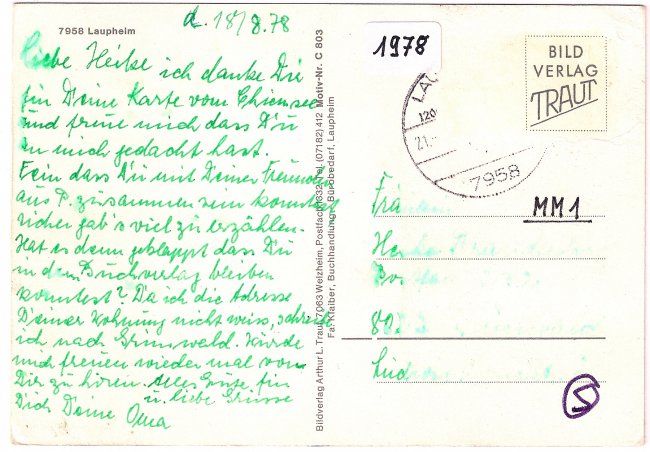 7958 Laupheim
d. 18/8.78
Liebe Heike ich danke Dir
für Deine Karte vom Chiemsee
und freue mich dass Du
an mich gedacht hast.
Fein dass Du mit Deiner Freundin
aus P. zusammen sein konntest
sicher gab's viel zu erzählen.
Hat es denn geklappt dass Du
in dem Buchverlag bleiben
konntest? Da ich die Adresse
Deiner Wohnung nicht weiss, schreibe
ich nach Grunwald. Würde
mich freuen wieder mal von
Dir zu hören. Alles Gute für
Dich Deine u. liebe Grüsse
Oma
Bildverlag Arthur L. Traut, 7063 Welzheim, Postfach 332, Tel. (07182) 412 Motiv-Nr. C 803
Fa. Klaiber, Buchhandlung - Bürobedarf, Laupheim
1978
BILD
VERLAG
TRAUT
LAU
21.
7958
MM1
5